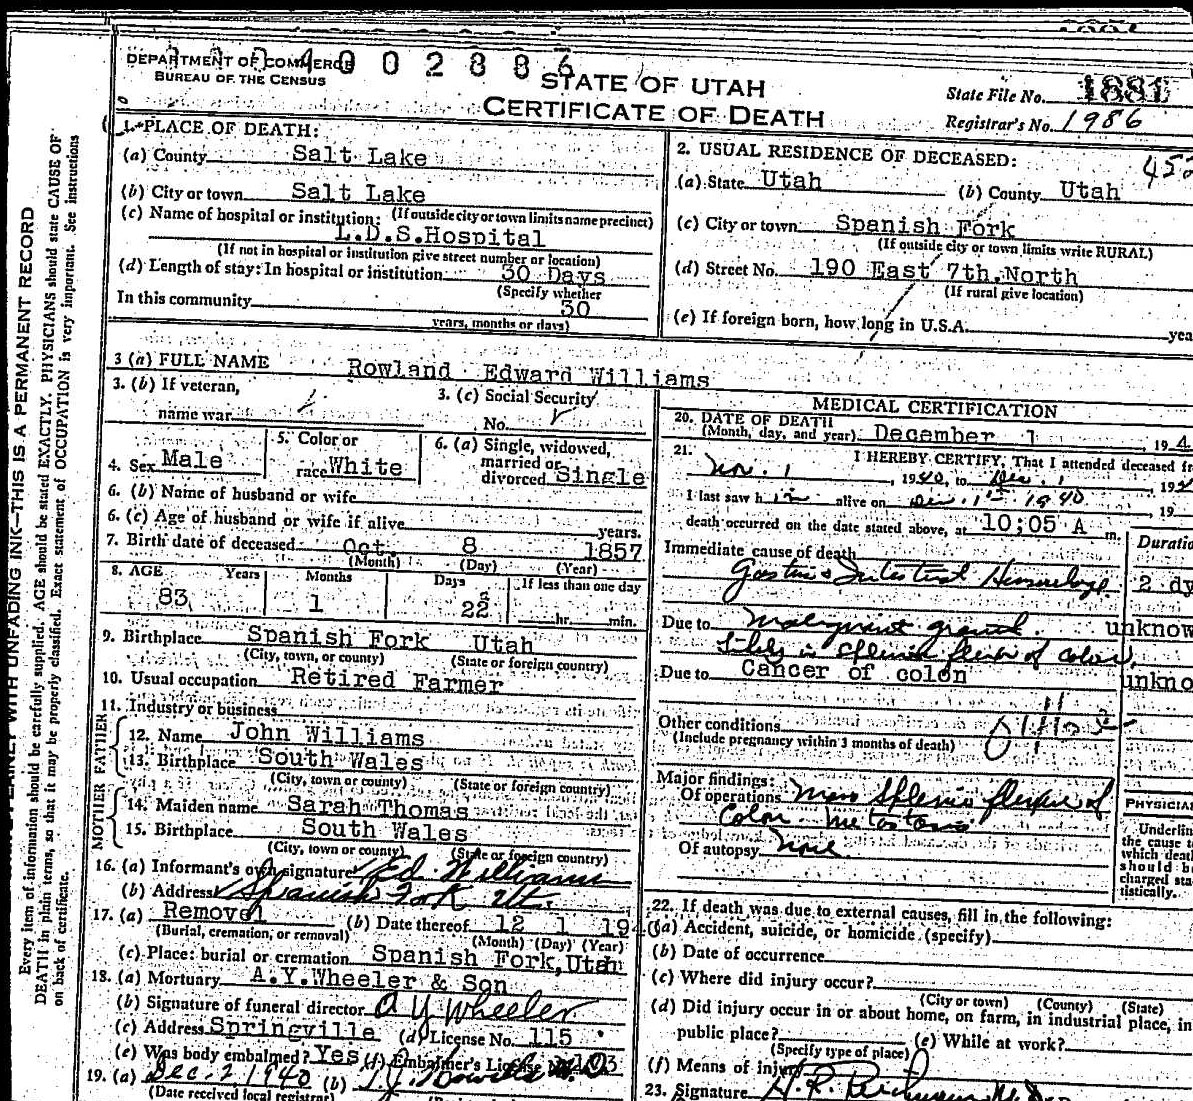 DEPARTMENT OF COMMERCE
BUREAU OF THE CENSUS
4002886
STATE OF UTAH
CERTIFICATE OF DEATH
State File No. 1881
Registrar's No. 1986
1. PLACE OF DEATH:
(a) County Salt Lake
(b) City or town Salt Lake
(If outside city or town limits name precinct)
(c) Name of hospital or institution:
L.D.S.Hospital
(If not in hospital or institution give street number or location)
(d) Length of stay: In hospital or institution 30 Days
(Specify whether
In this community 30
years, months or days)
2. USUAL RESIDENCE OF DECEASED:
452
(a) State Utah (b) County Utah
(c) City or town Spanish Fork
(If outside city or town limits write RURAL)
(d) Street No. 190 East 7th.North
(If rural give location)
(e) If foreign born, how long in U.S.A.
3 (a) FULL NAME Rowland Edward Williams
3. (b) If veteran,
name war
3. (c) Social Security
No.
4. Sex Male
5. Color or
race White
6. (a) Single, widowed,
married or
divorced Single
6. (b) Name of husband or wife
6. (c) Age of husband or wife if alive years.
7. Birth date of deceased Oct. 8 1857
(Month) (Day) (Year)
8. AGE Years Months Days If less than one day
83 1 22 hr. min.
9. Birthplace Spanish Fork Utah
(City, town, or county) (State or foreign country)
10. Usual occupation Retired Farmer
11. Industry or business
FATHER
12. Name John Williams
13. Birthplace South Wales
(City, town or county) (State or foreign country)
MOTHER
14. Maiden name Sarah Thomas
15. Birthplace South Wales
(City, town or county) (State or foreign country)
16. (a) Informant's own signature Ed Williams
(b) Address Spanish Fork Utah
17. (a) Removel (b) Date thereof 12 1 1940
(Burial, cremation, or removal) (Month) (Day) (Year)
(c) Place: burial or cremation Spanish Fork, Utah
18. (a) Mortuary A.Y.Wheeler & Son
(b) Signature of funeral director A Y Wheeler
(c) Address Springville (d) License No. 115
(e) Was body embalmed? Yes (f) Embalmer's License
19. (a) Dec. 2 1940 (b)
(Date received local registrar)
MEDICAL CERTIFICATION
20. DATE OF DEATH
(Month, day, and year) December 1 194
21. I HEREBY CERTIFY, That I attended deceased
Nov. 1, 1940, to Dec. 1, 19
I last saw him alive on Dec. 1st 1940, 19
death occurred on the date stated above, at 10;05 A m.
Immediate cause of death
Gastro Intestinal Hemorrhage 2 dy
Due to Malignant growth unknow
likely in splenic flexure of colon.
Due to Cancer of colon unkno
Other conditions
(Include pregnancy within 3 months of death)
Major findings:
Of operations Mass Splenic flexure of
Colon metastasis
Of autopsy None.
PHYSICIA
Underlin
the cause t
which deat
should b
charged sta
tistically.
22. If death was due to external causes, fill in the following:
(a) Accident, suicide, or homicide (specify)
(b) Date of occurrence
(c) Where did injury occur?
(City or town) (County) (State)
(d) Did injury occur in or about home, on farm, in industrial place, in
public place? (e) While at work?
(Specify type of place)
(f) Means of injury
23. Signature
WITH UNFADING INK—THIS IS A PERMANENT RECORD
Every item of information should be carefully supplied. AGE should be stated EXACTLY. PHYSICIANS should state CAUSE OF
DEATH in plain terms, so that it may be properly classified. Exact statement of OCCUPATION is very important. See instructions
on back of certificate.